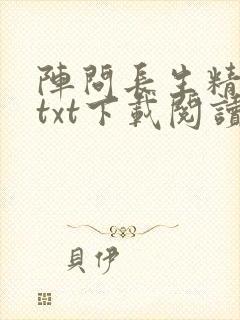 陣問長生精
txt下載閱讀
貝伊